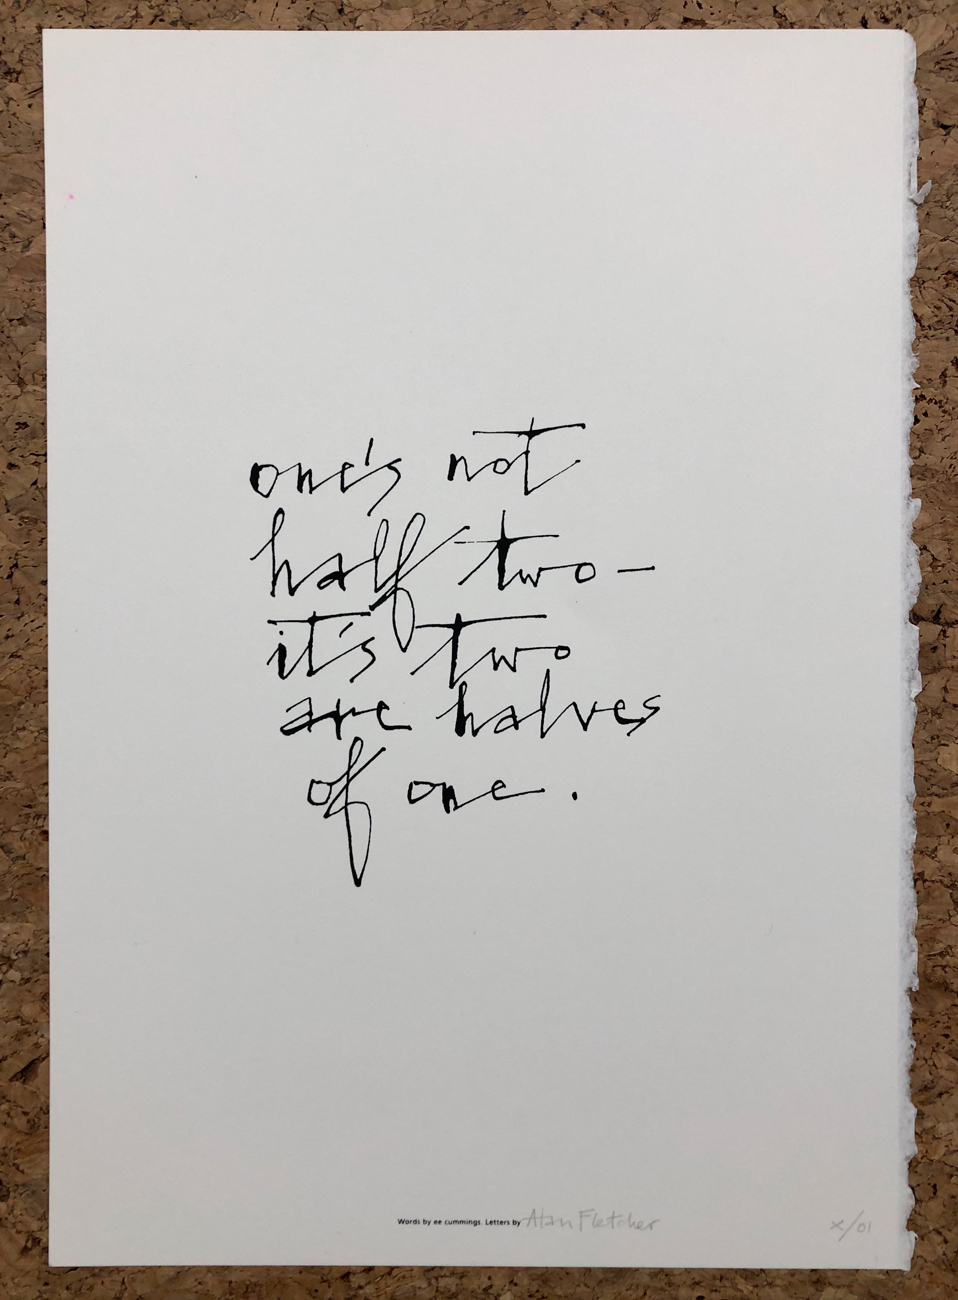 one's not
half two–
it's two
are halves
of one.
Words by ee cummings. Letters by Alan Fletcher
x/01